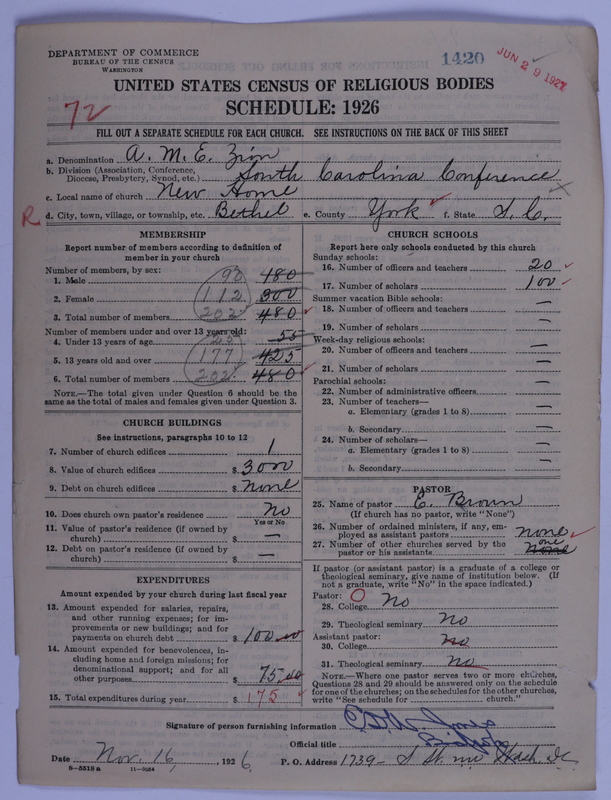 DEPARTMENT OF COMMERCE
BUREAU OF THE CENSUS
WASHINGTON
1420
JUN 29 1927
UNITED STATES CENSUS OF RELIGIOUS BODIES
SCHEDULE: 1926
72
FILL OUT A SEPARATE SCHEDULE FOR EACH CHURCH. SEE INSTRUCTIONS ON THE BACK OF THIS SHEET
a. Denomination A. M. E. Zion
b. Division (Association, Conference, Diocese, Presbytery, Synod, etc.) South Carolina Conference
c. Local name of church New Home
R d. City, town, village, or township, etc. Bethel e. County York f. State S. C.
MEMBERSHIP
Report number of members according to definition of
member in your church
Number of members, by sex:
1. Male 90 480
2. Female 112 300
3. Total number of members 202 480
Number of members under and over 13 years old:
4. Under 13 years of age 25 55
5. 13 years old and over 177 425
6. Total number of members 202 480
NOTE.—The total given under Question 6 should be the
same as the total of males and females given under Question 3.
CHURCH BUILDINGS
See instructions, paragraphs 10 to 12
7. Number of church edifices 1
8. Value of church edifices $ 3000
9. Debt on church edifices $ None
10. Does church own pastor's residence No
Yes or No
11. Value of pastor's residence (if owned by
church) $ —
12. Debt on pastor's residence (if owned by
church) $ —
EXPENDITURES
Amount expended by your church during last fiscal year
13. Amount expended for salaries, repairs,
and other running expenses; for im-
provements or new buildings; and for
payments on church debt $ 100.00
14. Amount expended for benevolences, in-
cluding home and foreign missions; for
denominational support; and for all
other purposes $ 75.00
15. Total expenditures during year $ 175
CHURCH SCHOOLS
Report here only schools conducted by this church
Sunday schools:
16. Number of officers and teachers 20
17. Number of scholars 100
Summer vacation Bible schools:
18. Number of officers and teachers —
19. Number of scholars —
Week-day religious schools:
20. Number of officers and teachers —
21. Number of scholars —
Parochial schools:
22. Number of administrative officers —
23. Number of teachers—
a. Elementary (grades 1 to 8) —
b. Secondary —
24. Number of scholars—
a. Elementary (grades 1 to 8) —
b. Secondary —
PASTOR
25. Name of pastor E. Brown
(If church has no pastor, write "None")
26. Number of ordained ministers, if any, em-
ployed as assistant pastors none
27. Number of other churches served by the one
pastor or his assistants None
If pastor (or assistant pastor) is a graduate of a college or
theological seminary, give name of institution below. (If
not a graduate, write "No" in the space indicated.)
Pastor: O
28. College No
29. Theological seminary No
Assistant pastor:
30. College No
31. Theological seminary No
NOTE.—Where one pastor serves two or more churches,
Questions 28 and 29 should be answered only on the schedule
for one of the churches; on the schedules for the other churches,
write "See schedule for church."
Signature of person furnishing information
Official title Bishop
Date Nov. 16, 1926. P. O. Address 1739- S St. nw Wash. DC
8—5518a 11—9264